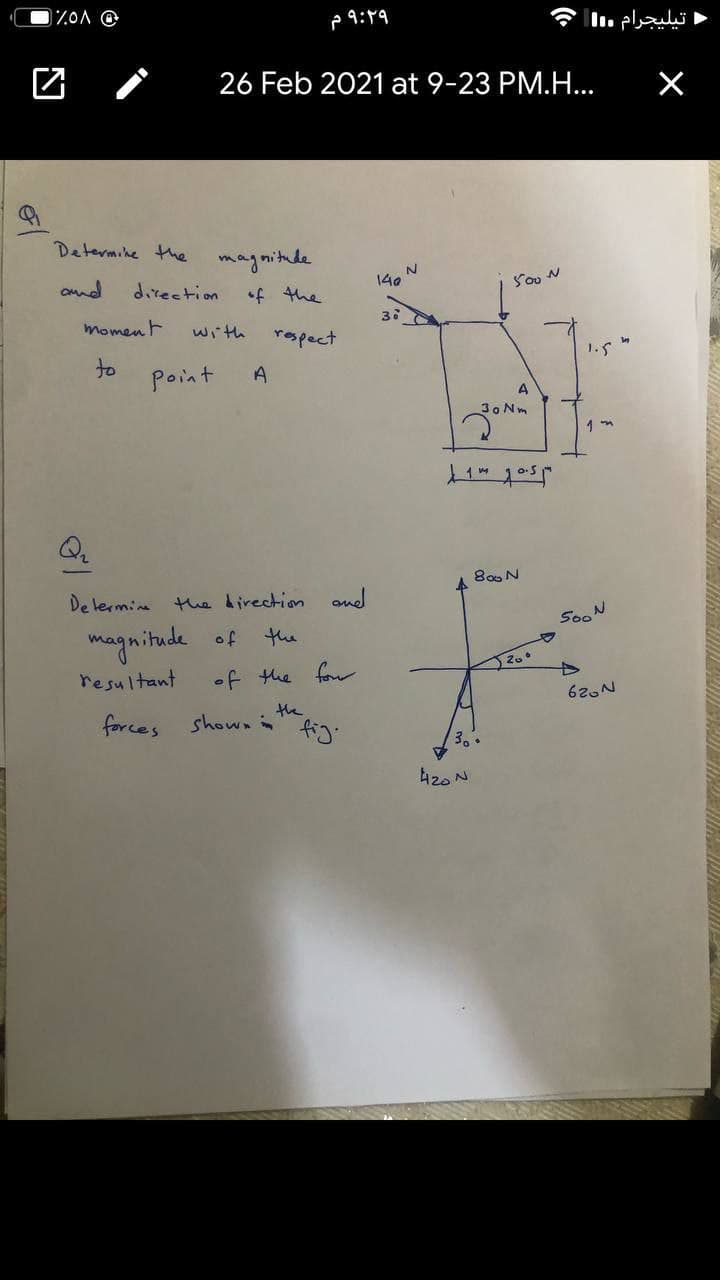 ٪٥٨
٩:٢٩ م
تيليجرام
26 Feb 2021 at 9-23 PM.H...
Q1
Determine the magnitude
and direction of the
moment with respect
to point A
140 N
30°
500 N
1.5 m
A
30 Nm
1 m
1 m 0.5 m
Q2
Determine the direction and
magnitude of the
resultant of the four
forces shown in the fig.
800 N
500 N
20°
620 N
30°
420 N